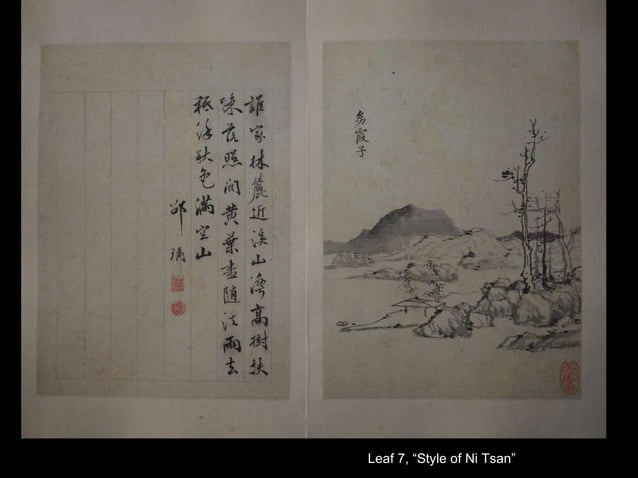 誰家林麓近溪山灣高樹扶
疎落照間黄葉盡隨雨去
秪餘秋色滿空山
邵彌
為霞子
Leaf 7, “Style of Ni Tsan”